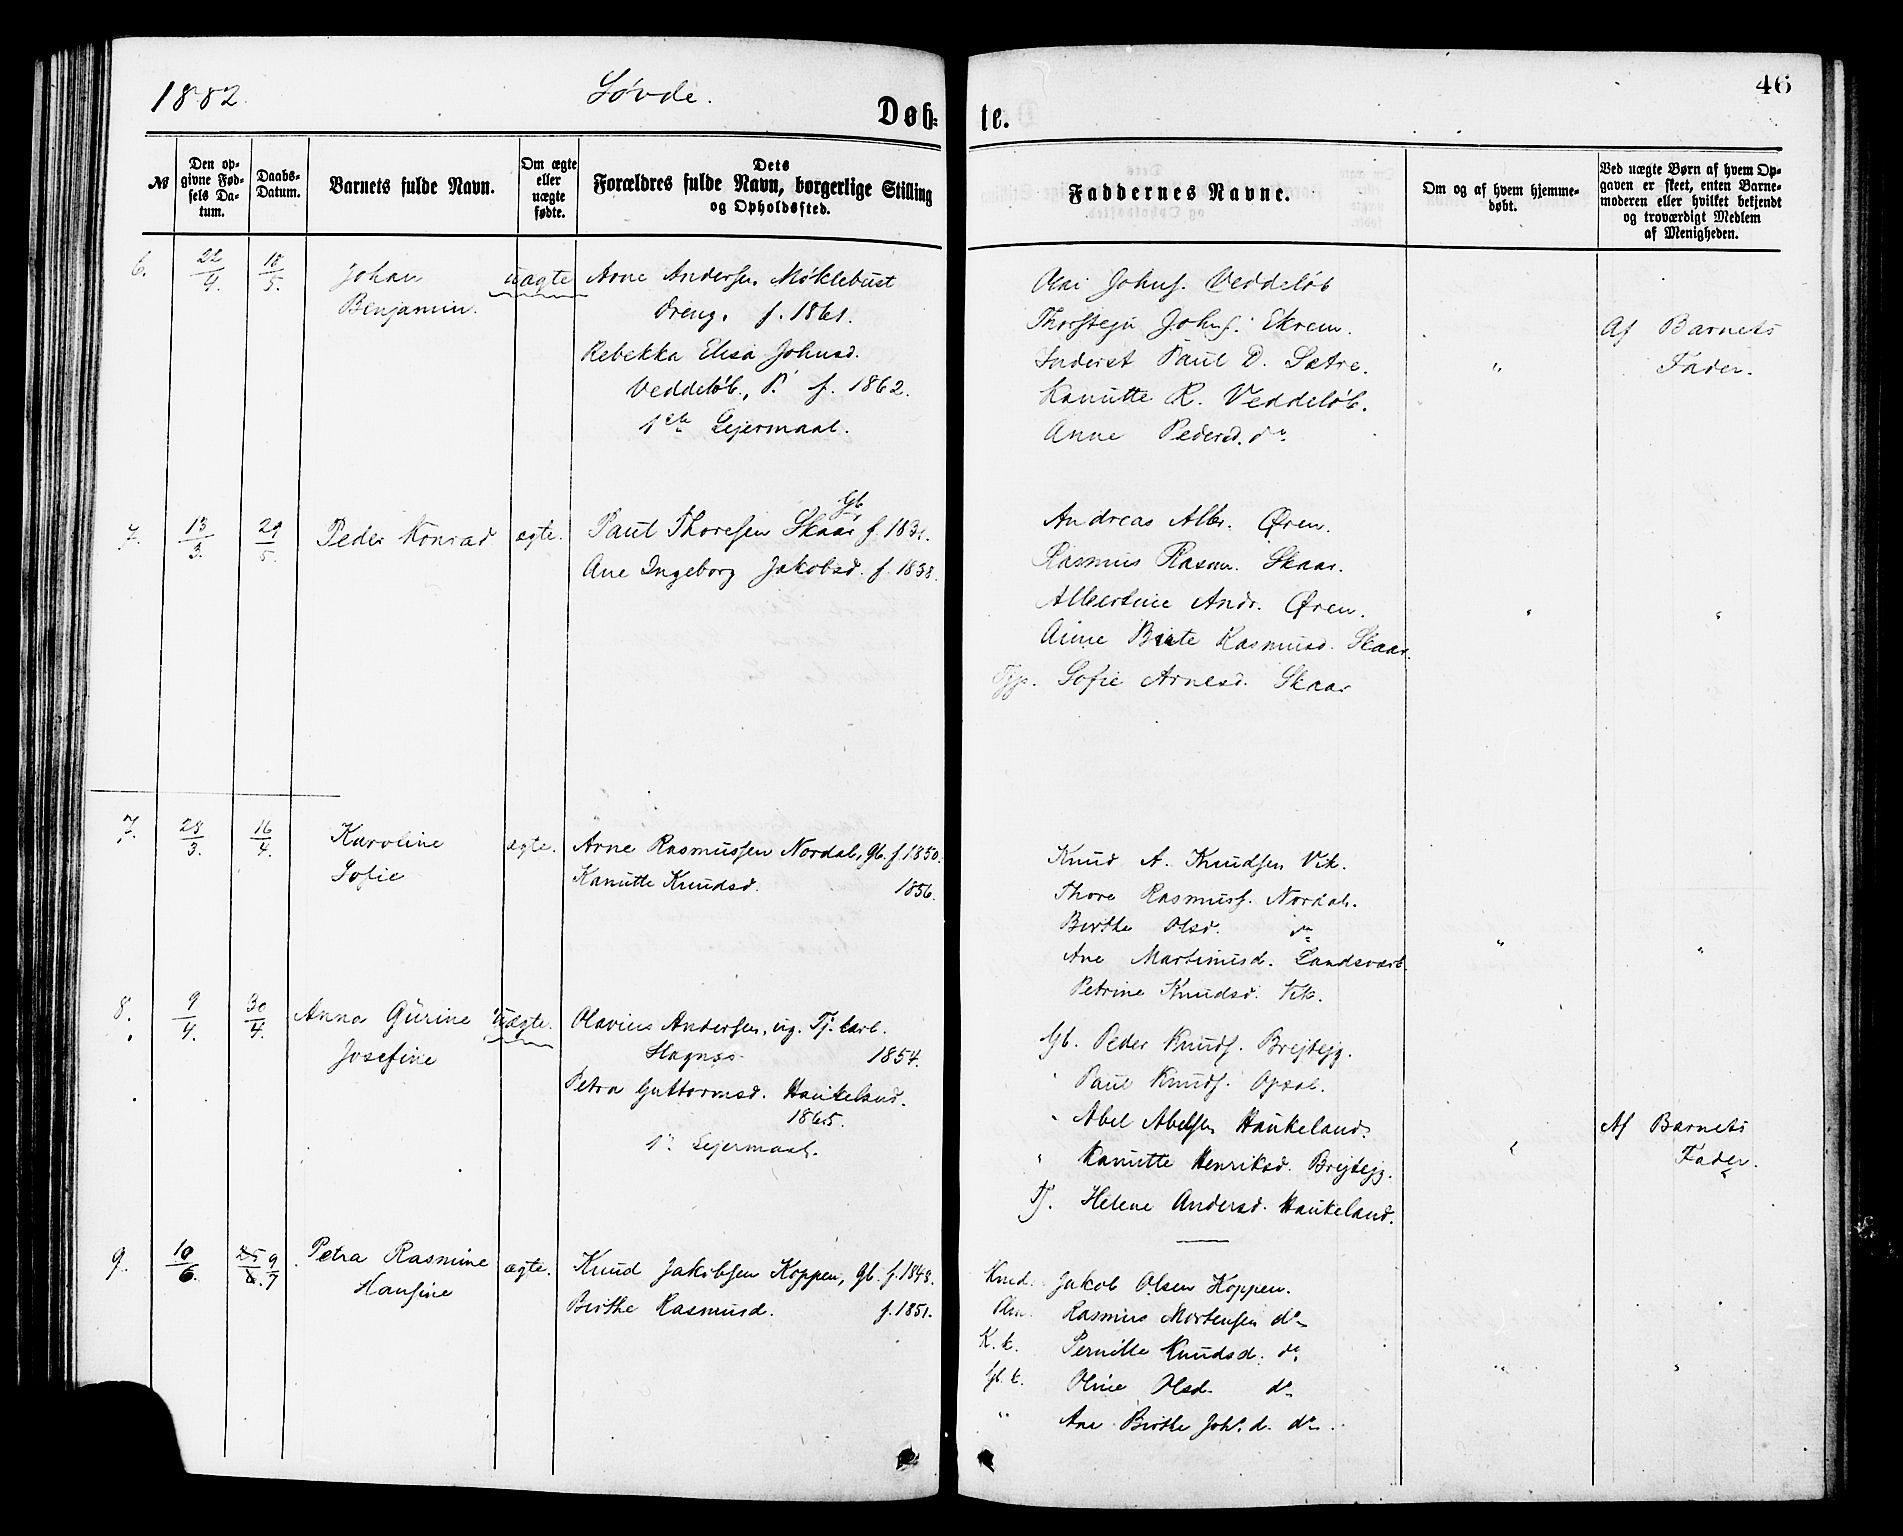 1882.
Søvde.
Døb-
te.
46
№
Den op-
givne Fød-
sels Da-
tum.
Daabs-
Datum.
Barnets fulde Navn.
Om ægte
eller
uægte
fødte.
Dets
Forældres fulde Navn, borgerlige Stilling
og Opholdssted.
Faddernes Navne.
Om og af hvem hjemme-
døbt.
Ved uægte Børn af hvem Op-
gaven er skeet, enten Barne-
moderen eller hvilket bekjendt
og troværdigt Medlem
af Menigheden.
6. 22/4. 18/5. Johan uægte Arne Andersen Møklebust
Benjamin. dreng. f. 1861.
Rebekka Elisa Johnsd.
Veddeløb., P. f. 1862.
1ste Lejermaal.
Johns. Veddeløb
Thorstejn Johns. Ekrem.
Inderst Paul D. Sætre. "
Kanutte R. Veddeløb.
Anne Pedersd. do
Af Barnets
Fader.
7. 13/3. 29/5. Peder Konrad ægte. Paul Thoresen Skaar Gb. f. 1831.
Ane Ingeborg Jakobsd. f. 1838.
Andreas Albr. Øren.
Rasmus Rasm. Skaar.
Albertine Andr. Øren. " "
Anne Birte Rasmusd. Skaar.
Sofie Arnesd. Skaar
7. 28/3. 16/4. Karoline ægte. Arne Rasmussen Nordal, Gb. f. 1850.
Sofie Kanutte Knudsd. 1856.
Knud A. Knudsen Vik.
Thore Rasmuss. Nordal.
Birthe Olsd. do
Ane Martinusd. Landsværk " "
Petrine Knudsd. Vik.
8. 9/4. 30/4. Anna Gurine uægte. Olavius Andersen, ug. Tj. karl.
Josefine Hagnes 1854.
Petra Guttormsd. Haukeland.
1865.
1. Lejermaal.
Gb. Peder Knuds. Brejtejg.
" Paul Knuds. Opsal.
" Abel Abelsen Haukeland.
" Kanutte Henriksd. Brejtejg. "
Tj. Helene Andersd. Haukeland.
Af Barnets
Fader.
9. 10/6. 25/6. 9/7 Petra Rasmine ægte. Knud Jakobsen Koppen, Gb. f. 1848.
Hansine Birthe Rasmusd. f. 1851.
Jakob Olsen Koppen.
Rasmus Mortensen do
K. k. Pernille Knudsd. do
Gb. k. Oline Olsd. do " "
" Ane Birthe Joh. d. do